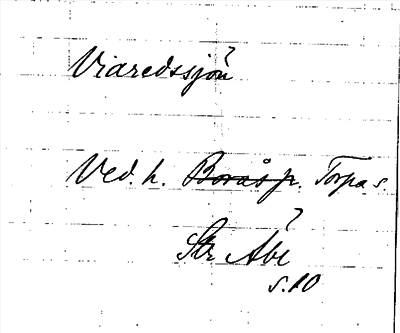 Viaredssjön
Ved. h. Borås p. Torpa s.
Str Åbe
s. 10